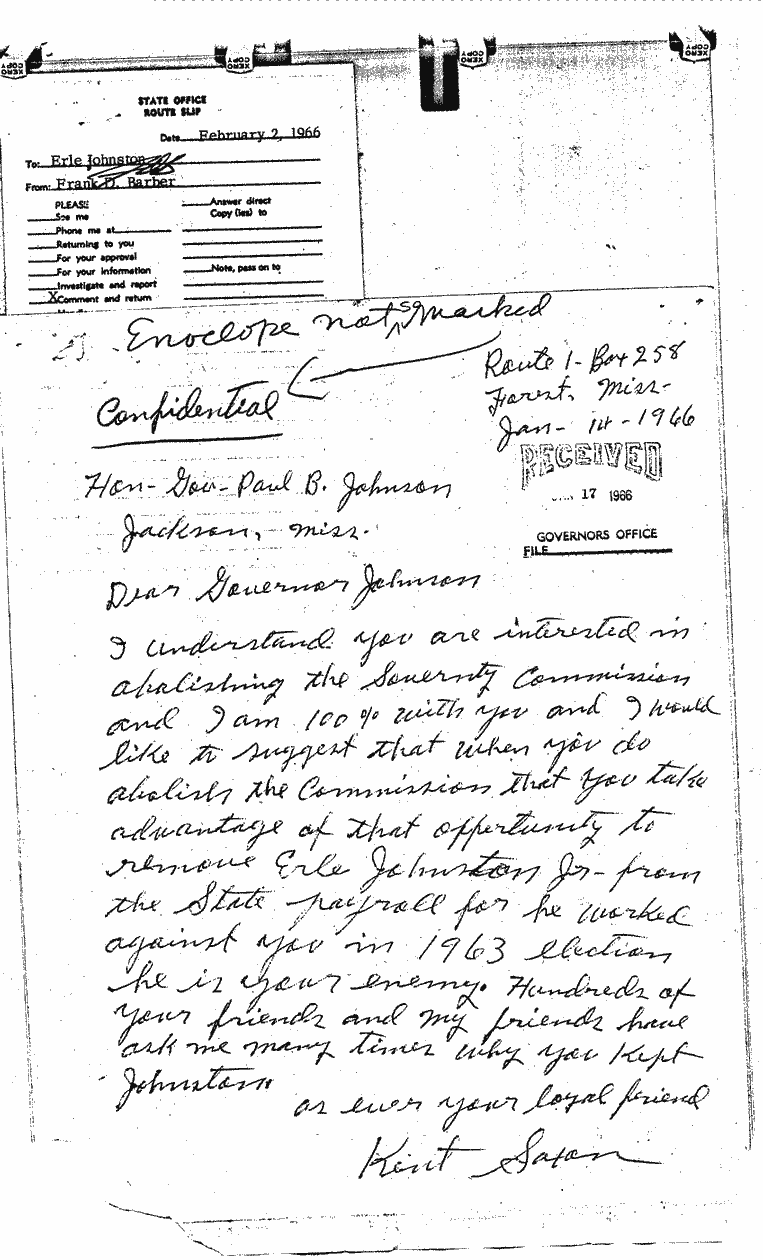 XERO
COPY
XERO
COPY
XERO
COPY
XERO
COPY
STATE OFFICE
ROUTE SLIP
Date February 2, 1966
To: Erle Johnston
From: Frank D. Barber
PLEASE
See me
Phone me at
Returning to you
For your approval
For your information
Investigate and report
X Comment and return
Answer direct
Copy (ies) to
Note, pass on to
Envelope not so marked
Confidential
Route 1 - Box 258
Forest, Miss-
Jan- 14 -1966
RECEIVED
JAN 17 1966
GOVERNORS OFFICE
FILE
Hon- Gov- Paul B. Johnson
Jackson, - Miss.
Dear Governor Johnson
I understand you are interested in
abolishing the Sovernty Commission
and I am 100% with you and I would
like to suggest that when you do
abolish the Commission that you take
advantage of that opportunity to
remove Erle Johnston Jr- from
the State payroll for he worked
against you in 1963 election
he is your enemy. Hundreds of
your friends and my friends have
ask me many times why you kept
Johnston.
as ever your loyal friend
Kent Saxon